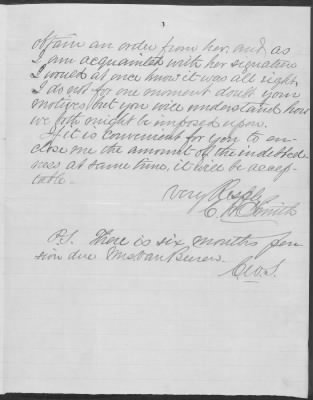 obtain an order from her, and as
I am acquainted with her signature
I would at once know it was all right.
I do not for one moment doubt your
motives, but you will understand how
we both might be imposed upon.
If it is convenient for you to en-
close me the amount of the indebted-
ness at same time, it will be accep-
table.
Very Respy
C W Smith
P.S. There is six months pen-
sion due Mrs Van Buren.
C.W.S.